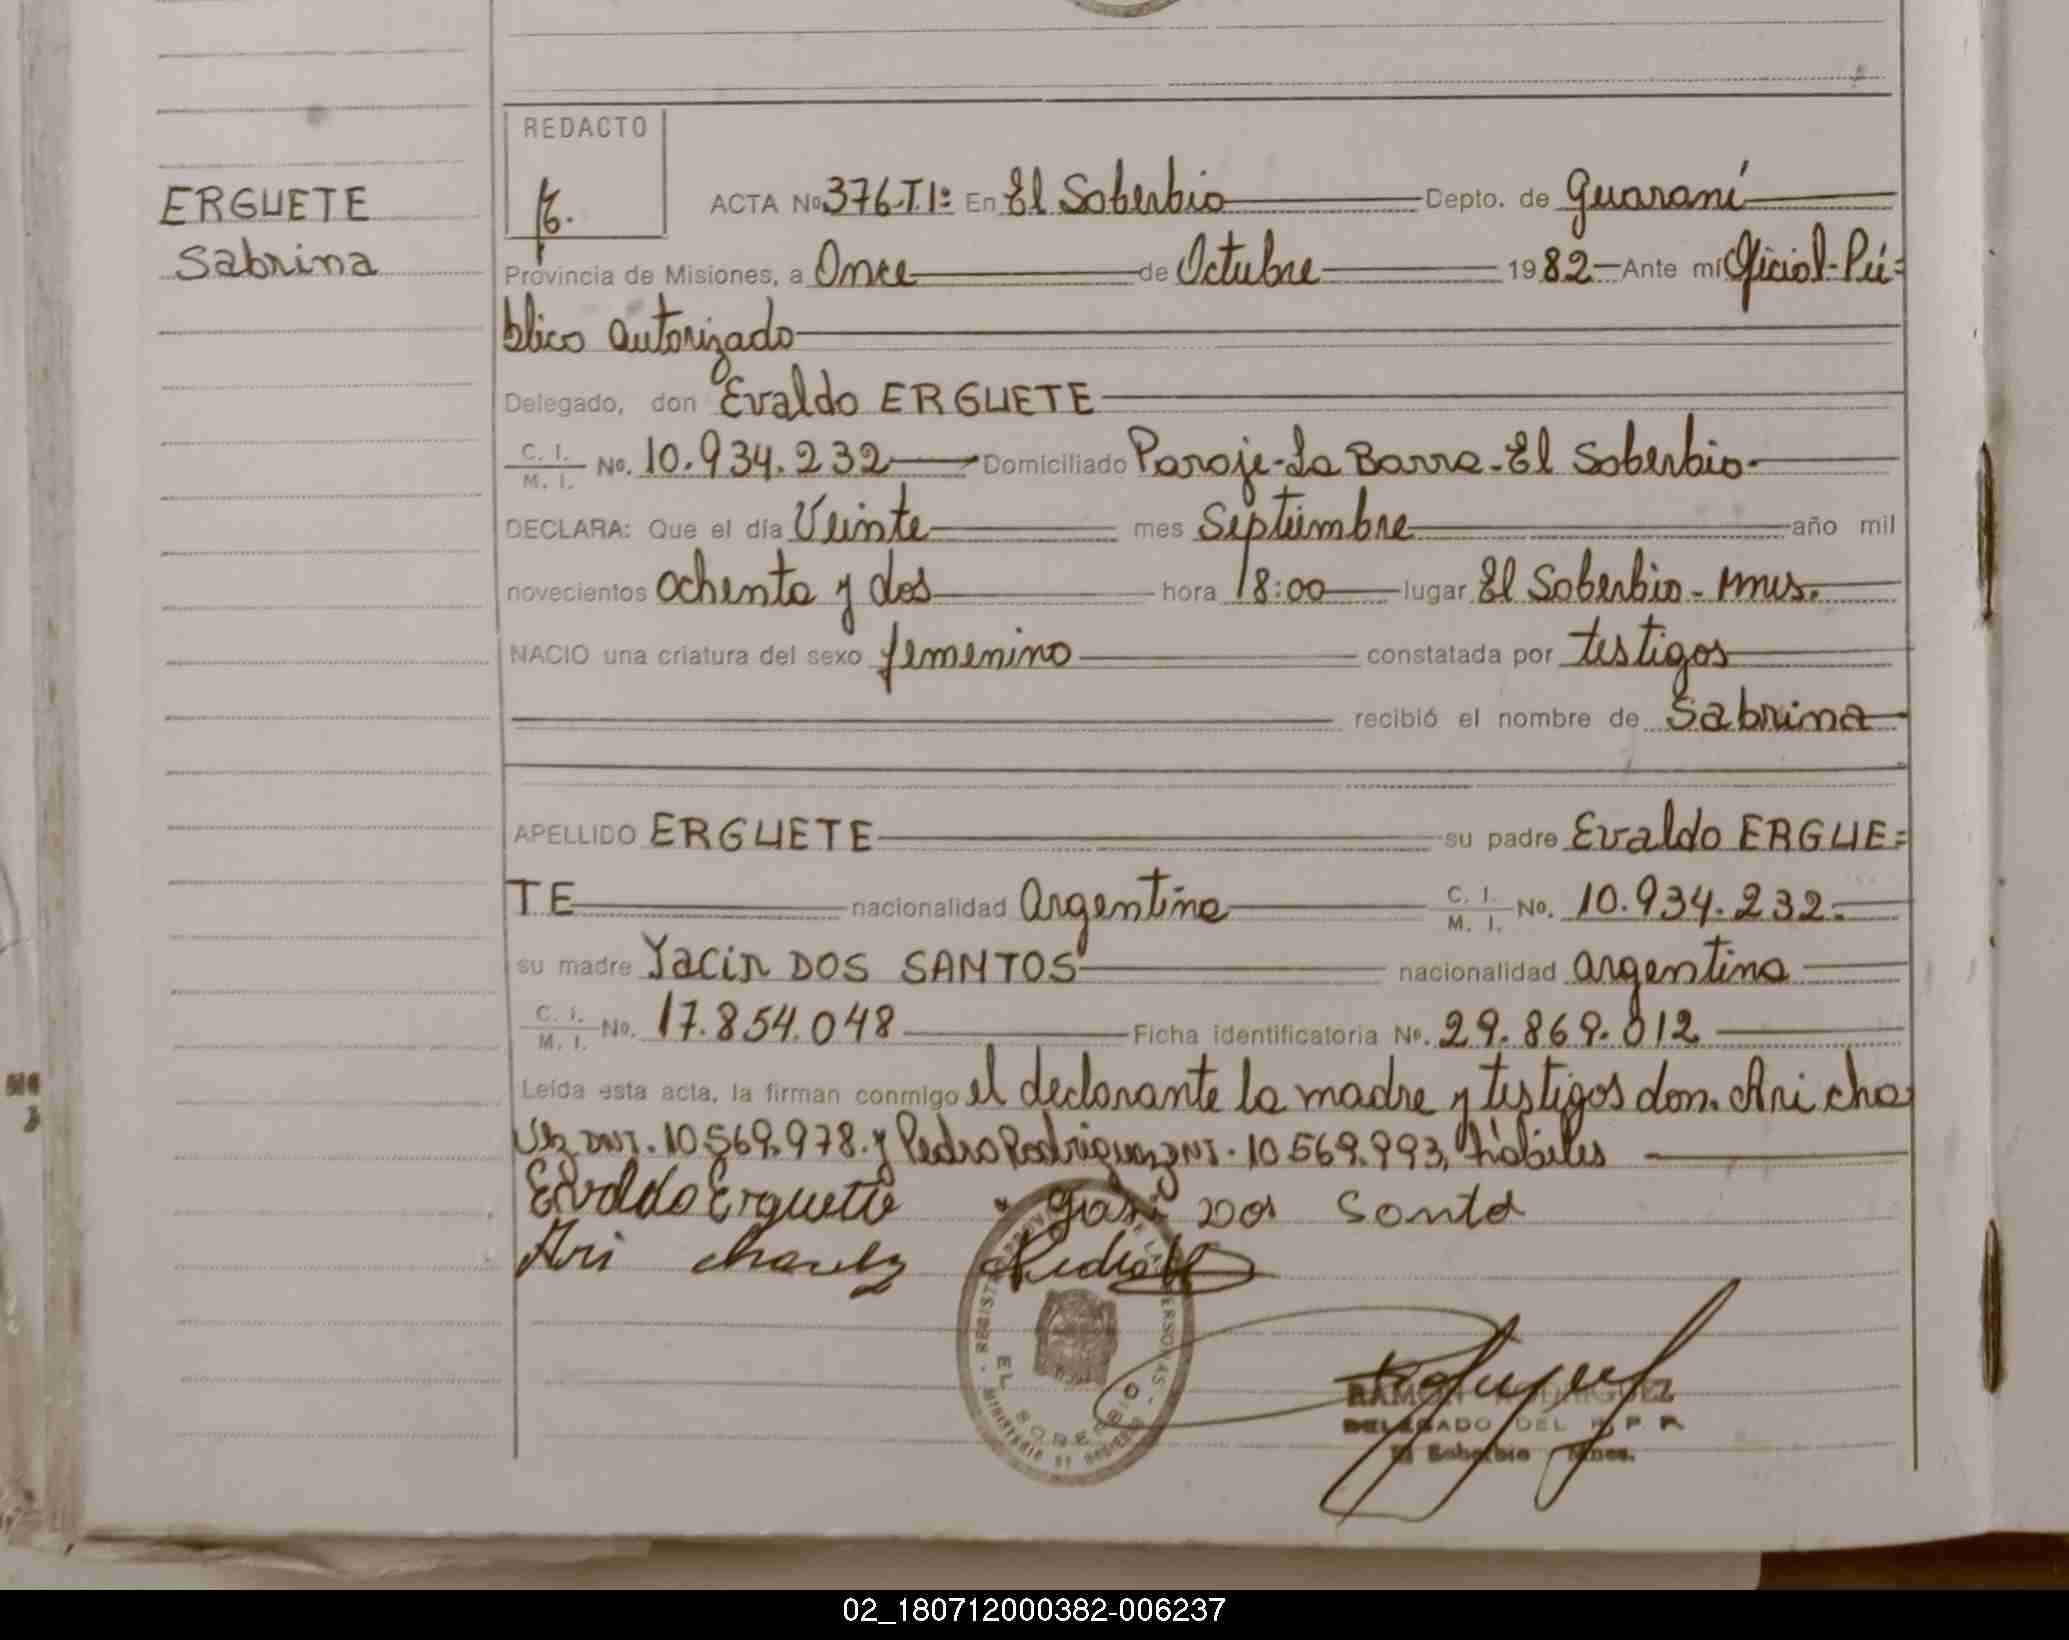 ERGUETE
Sabrina
REDACTO
ACTA No 376.T.1º En El Soberbio Depto. de Guaraní
Provincia de Misiones, a Once de Octubre 1982 Ante mí Oficial-Pú=
blico autorizado
Delegado, don Evaldo ERGUETE
C. I. M. I. No. 10.934.232 Domiciliado Paraje-La Barra-El Soberbio-
DECLARA: Que el día Veinte mes Septiembre año mil
novecientos ochenta y dos hora 18:00 lugar El Soberbio-Mnes.
NACIO una criatura del sexo femenino constatada por testigos
recibió el nombre de Sabrina
APELLIDO ERGUETE su padre Evaldo ERGUE=
TE nacionalidad Argentina C. I. M. I. No. 10.934.232.
su madre Yacir DOS SANTOS nacionalidad argentina
C. I. M. I. No. 17.854.048 Ficha identificatoria No. 29.869.012
Leída esta acta, la firman conmigo el declarante la madre y testigos don. Ari cha
vez DNI. 10.569.978. y Pedro Rodriguez DNI. 10.569.993, hábiles
Evaldo Erguete dos Santo
Ari chavez Pedro
EL SOBERBIO
RAMON RODRIGUEZ
DELEGADO DEL R. P. P.
El Soberbio Mnes.
02_180712000382-006237